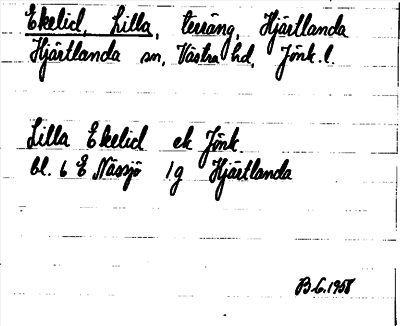 Ekelid, Lilla, terräng, Hjärtlanda
Hjärtlanda sn, Västra hd, Jönk. l.
Lilla Ekelid ek Jönk.
bl. 6 E Nässjö 1g Hjärtlanda
B G. 1958